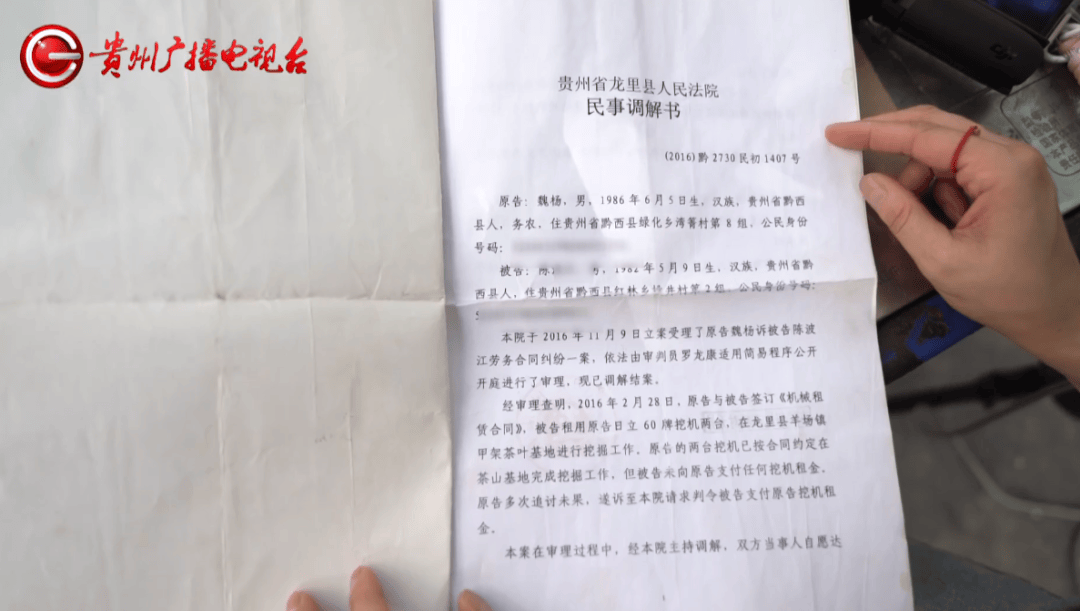 贵州广播电视台
贵州省龙里县人民法院
民事调解书
(2016)黔2730民初1407号
原告：魏杨，男，1986年6月5日生，汉族，贵州省黔西
县人，务农，住贵州省黔西县绿化乡湾箐村第8组，公民身份
号码：
被告：陈 1982年5月9日生，汉族，贵州省黔
西县人，住贵州省黔西县红林乡 井村第2组，公民身份号码：
本院于2016年11月9日立案受理了原告魏杨诉被告陈波
江劳务合同纠纷一案，依法由审判员罗龙康适用简易程序公开
开庭进行了审理，现已调解结案。
经审理查明，2016年2月28日，原告与被告签订《机械租
赁合同》，被告租用原告日立60牌挖机两台，在龙里县羊场镇
甲架茶叶基地进行挖掘工作，原告的两台挖机已按合同约定在
茶山基地完成挖掘工作，但被告未向原告支付任何挖机租金。
原告多次追讨未果，遂诉至本院请求判令被告支付原告挖机租
金。
本案在审理过程中，经本院主持调解，双方当事人自愿达